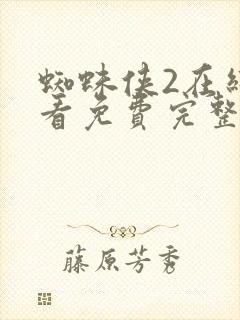 蜘蛛侠2在
看免費完整
藤原芳秀